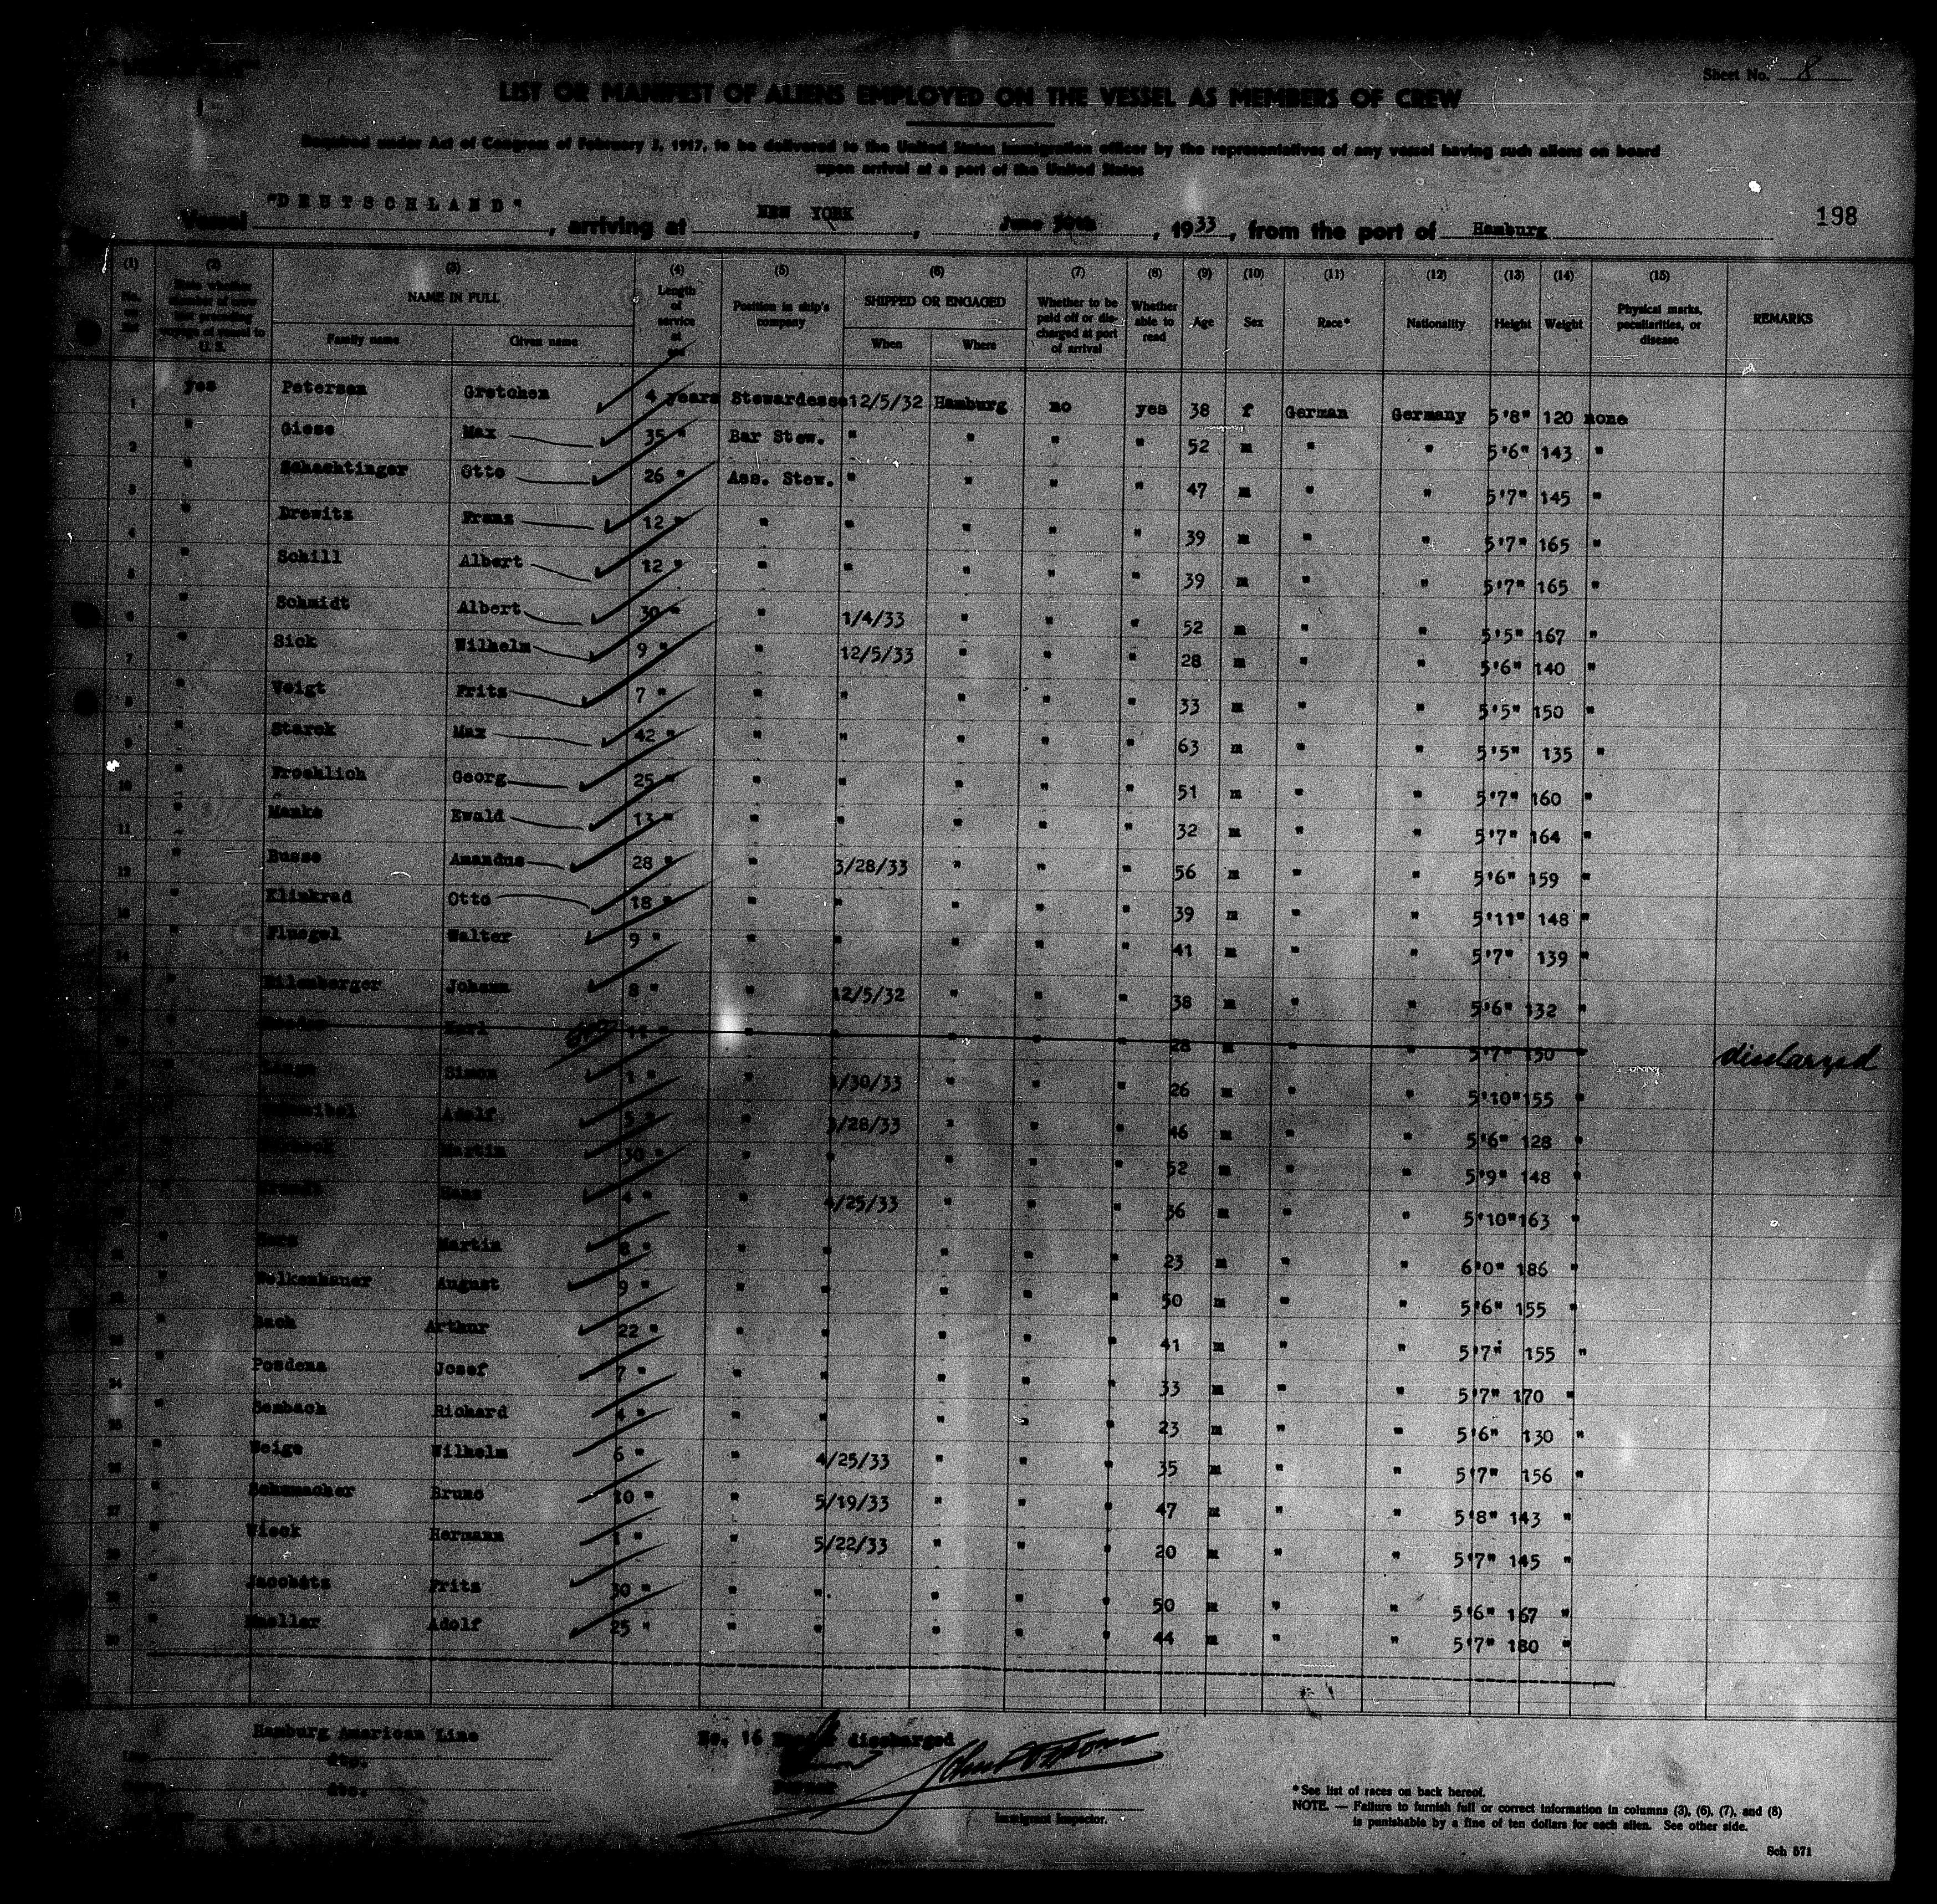 Sheet No. 8
LIST OR MANIFEST OF ALIENS EMPLOYED ON THE VESSEL AS MEMBERS OF CREW
Required under Act of Congress of February 5, 1917, to be delivered to the United States immigration officer by the representatives of any vessel having such aliens on board
upon arrival at a port of the United States
Vessel "DEUTSCHLAND", arriving at NEW YORK, June, 1933, from the port of Hamburg
198
(1) (2) (3) (4) (5) (6) (7) (8) (9) (10) (11) (12) (13) (14) (15)
No. on list State whether member of crew last preceding voyage of vessel to U. S. NAME IN FULL Family name Given name Length of service at sea Position in ship's company SHIPPED OR ENGAGED When Where Whether to be paid off or discharged at port of arrival Whether able to read Age Sex Race* Nationality Height Weight Physical marks, peculiarities, or disease REMARKS
1 yes Petersen Gretchen 4 years Stewardesse 12/5/32 Hamburg no yes 38 f German Germany 5'8" 120 none
2 " Giese Max 35 " Bar Stew. " " " " 52 m " " 5'6" 143 "
3 " Schachtinger Otto 26 " Ass. Stew. " " " " 47 m " " 5'7" 145 "
4 " Drewitz Franz 12 " " " " " " 39 m " " 5'7" 165 "
5 " Schill Albert 12 " " " " " " 39 m " " 5'7" 165 "
6 " Schmidt Albert 30 " " 1/4/33 " " " 52 m " " 5'5" 167 "
7 " Sick Wilhelm 9 " " 12/5/33 " " " 28 m " " 5'6" 140 "
8 " Voigt Fritz 7 " " " " " " 33 m " " 5'5" 150 "
9 " Starck Max 42 " " " " " " 63 m " " 5'5" 135 "
10 " Froehlich Georg 25 " " " " " " 51 m " " 5'7" 160 "
11 " Manke Ewald 13 " " " " " " 32 m " " 5'7" 164 "
12 " Busse Amandus 28 " " 3/28/33 " " " 56 m " " 5'6" 159 "
13 " Klinkrad Otto 18 " " " " " " 39 m " " 5'11" 148 "
14 " Fluegel Walter 9 " " " " " " 41 m " " 5'7" 139 "
" Eilenberger Johann 8 " " 12/5/32 " " " 38 m " " 5'6" 132 "
" Karl 11 " " " " " " 28 m " " 5'7" 150 " discharged
" Simon 1 " " /30/33 " " " 26 m " " 5'10" 155 "
" Adolf 5 " " 3/28/33 " " " 46 m " " 5'6" 128 "
" Martin 30 " " " " " " 52 m " " 5'9" 148 "
" Hans 4 " " 4/25/33 " " " 36 m " " 5'10" 163 "
" Martin 8 " " " " " " 23 m " " 6'0" 186 "
" Wolkenhauer August 9 " " " " " " 50 m " " 5'6" 155 "
" Bach Arthur 22 " " " " " " 41 m " " 5'7" 155 "
24 " Posdena Josef 7 " " " " " " 33 m " " 5'7" 170 "
25 " Sembach Richard 4 " " " " " " 23 m " " 5'6" 130 "
26 " Weige Wilhelm 6 " " 4/25/33 " " " 35 m " " 5'7" 156 "
27 " Schumacher Bruno 30 " " 5/19/33 " " " 47 m " " 5'8" 143 "
" Wieck Hermann 1 " " 5/22/33 " " " 20 m " " 5'7" 145 "
" Fritz 30 " " " " " " 50 m " " 5'6" 167 "
" Mueller Adolf 25 " " " " " " 44 m " " 5'7" 180 "
Hamburg American Line
dto.
dto.
No. 16 discharged
Immigrant Inspector.
*See list of races on back hereof.
NOTE. — Failure to furnish full or correct information in columns (3), (6), (7), and (8)
is punishable by a fine of ten dollars for each alien. See other side.
Sch 571